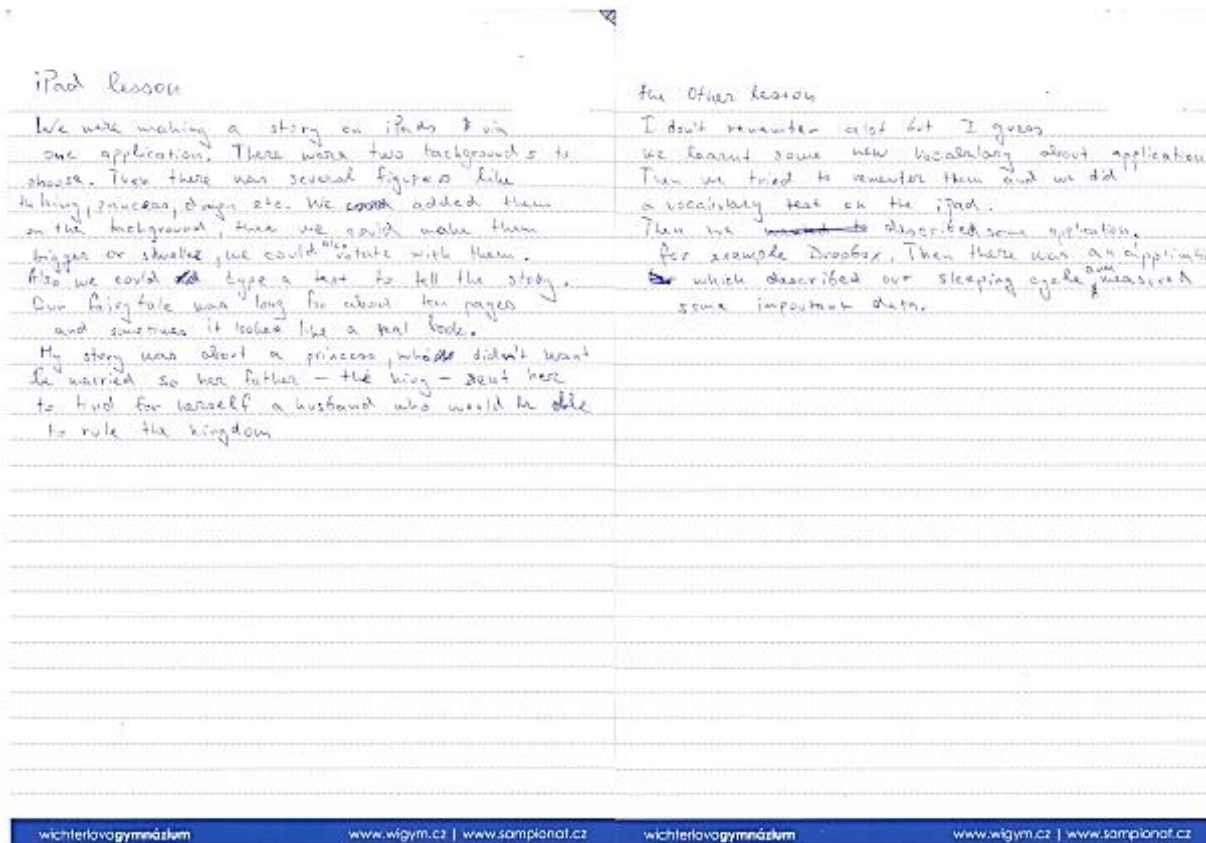 iPad lesson
We were making a story on iPads via
one application. There were two backgrounds to
choose. Then there was several figures like
king, princess, dragon etc. We added them
on the background, then we could make them
bigger or smaller, we could also rotate with them.
Also we could type a text to tell the story.
Our fairytale was long for about ten pages
and sometimes it looked like a real book.
My story was about a princess, who didn't want
be married so her father – the king – sent here
to find for herself a husband who would be able
to rule the kingdom
wichterlovogymnázium www.wigym.cz | www.sampionat.cz
the Other lesson
I don't remember alot but I guess
we learnt some new vocabulary about application
Then we tried to remember them and we did
a vocabulary test on the iPad.
Then we described some application.
for example Dropbox. Then there was an applicati
which described our sleeping cycle, measured
some important data.
wichterlovogymnázium www.wigym.cz | www.sampionat.cz